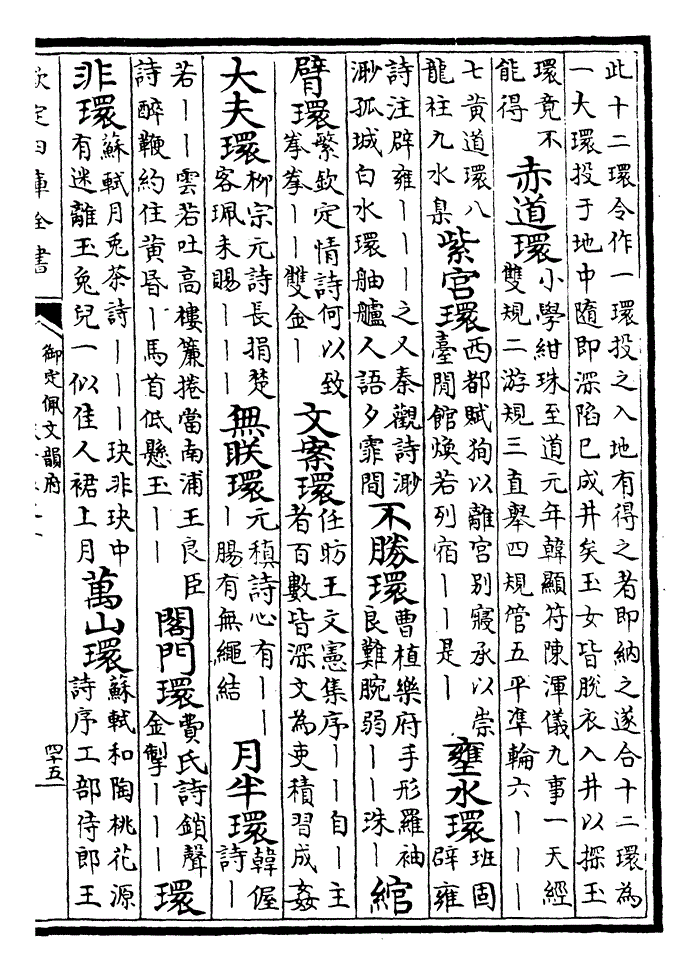 此十二環令作一環投之入地有得之者即納之遂合十二環為
一大環投于地中隨即深陷已成井矣玉女皆脫衣入井以探玉
環竟不
能得
赤道環
小學紺珠至道元年韓顯符陳渾儀九事一天經
雙規二游規三直舉四規管五平準輪六丨丨丨
七黄道環八
龍柱九水臬
紫宫環
西都賦狥以離宮别寢承以崇
臺閒館煥若列宿丨丨是丨
壅水環
班固
辟雍
詩注辟雍丨丨丨之又秦觀詩渺
渺孤城白水環舳艫人語夕霏間
不勝環
曹植樂府手形羅袖
良難腕弱丨丨珠丨
綰
臂環
繁欽定情詩何以致
拳拳丨丨雙金丨
文案環
任昉王文憲集序丨丨自丨主
者百數皆深文為吏積習成姦
大夫環
柳宗元詩長捐楚
客珮未賜丨丨丨
無眹環
元稹詩心有丨丨
丨腸有無繩結
月半環
韓偓
詩丨
若丨丨雲若吐高樓簾捲當南浦王良臣
詩醉鞭約住黄昏丨馬首低懸玉丨丨
閤門環
費氏詩鎖聲
金掣丨丨丨
環
非環
蘇軾月兎茶詩丨丨丨玦非玦中
有迷離玉兔兒一似佳人裙上月
萬山環
蘇軾和陶桃花源
詩序工部侍郎王
欽定四庫全書
御定佩文韻府
四十五